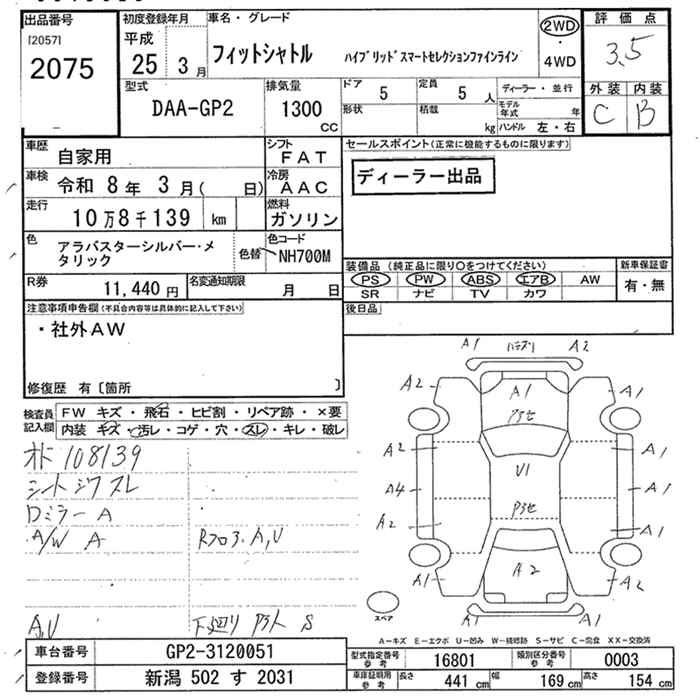 出品番号 初度登録年月 車名・グレード 評価点
[2057]
2075
平成
25 3月
フィットシャトル ハイブリッドスマートセレクションファインライン
2WD
・
4WD
3.5
型式 排気量 ドア 定員 ディーラー・並行 外装 内装
DAA-GP2 1300 CC
5 5人
形状 積載 kg
モデル年式 年
ハンドル 左・右
C B
車歴 自家用 シフト FAT
セールスポイント(正常に機能するものに限ります)
車検 令和 8年 3月( 日) 冷房 AAC
ディーラー出品
走行 10万8千139 km 燃料 ガソリン
色 アラバスターシルバー・メタリック 色替 色コード NH700M
R券 11,440円 名変通知期限 月 日
装備品(純正品に限り○をつけてください) 新車保証書
PS PW ABS エアB AW 有・無
SR ナビ TV カワ
注意事項申告欄(不具合内容等は具体的に記入して下さい)
後日品
・社外AW
修復歴 有〔箇所 〕
検査員記入欄
FW キズ・飛石・ヒビ割・リペア跡・×要
内装 キズ・汚レ・コゲ・穴・スレ・キレ・破レ
メーター 108139
シート シワ スレ
Dミラー A
A/W A Rフロア A,U
A,U 下廻り S
A1 A2
A2 A1 A1
アセ
A2 A1
U1
A4 A1
アセ
A2 A1
A2
A1 A2
A1 A1
スペア
A-キズ E-エクボ U-凹み W-補修跡 S-サビ C-腐食 XX-交換済
車台番号 GP2-3120051
型式指定番号 参考 16801 類別区分番号 参考 0003
登録番号 新潟 502 す 2031
車庫証明用 参考 長さ 441 cm 幅 169 cm 高さ 154 cm